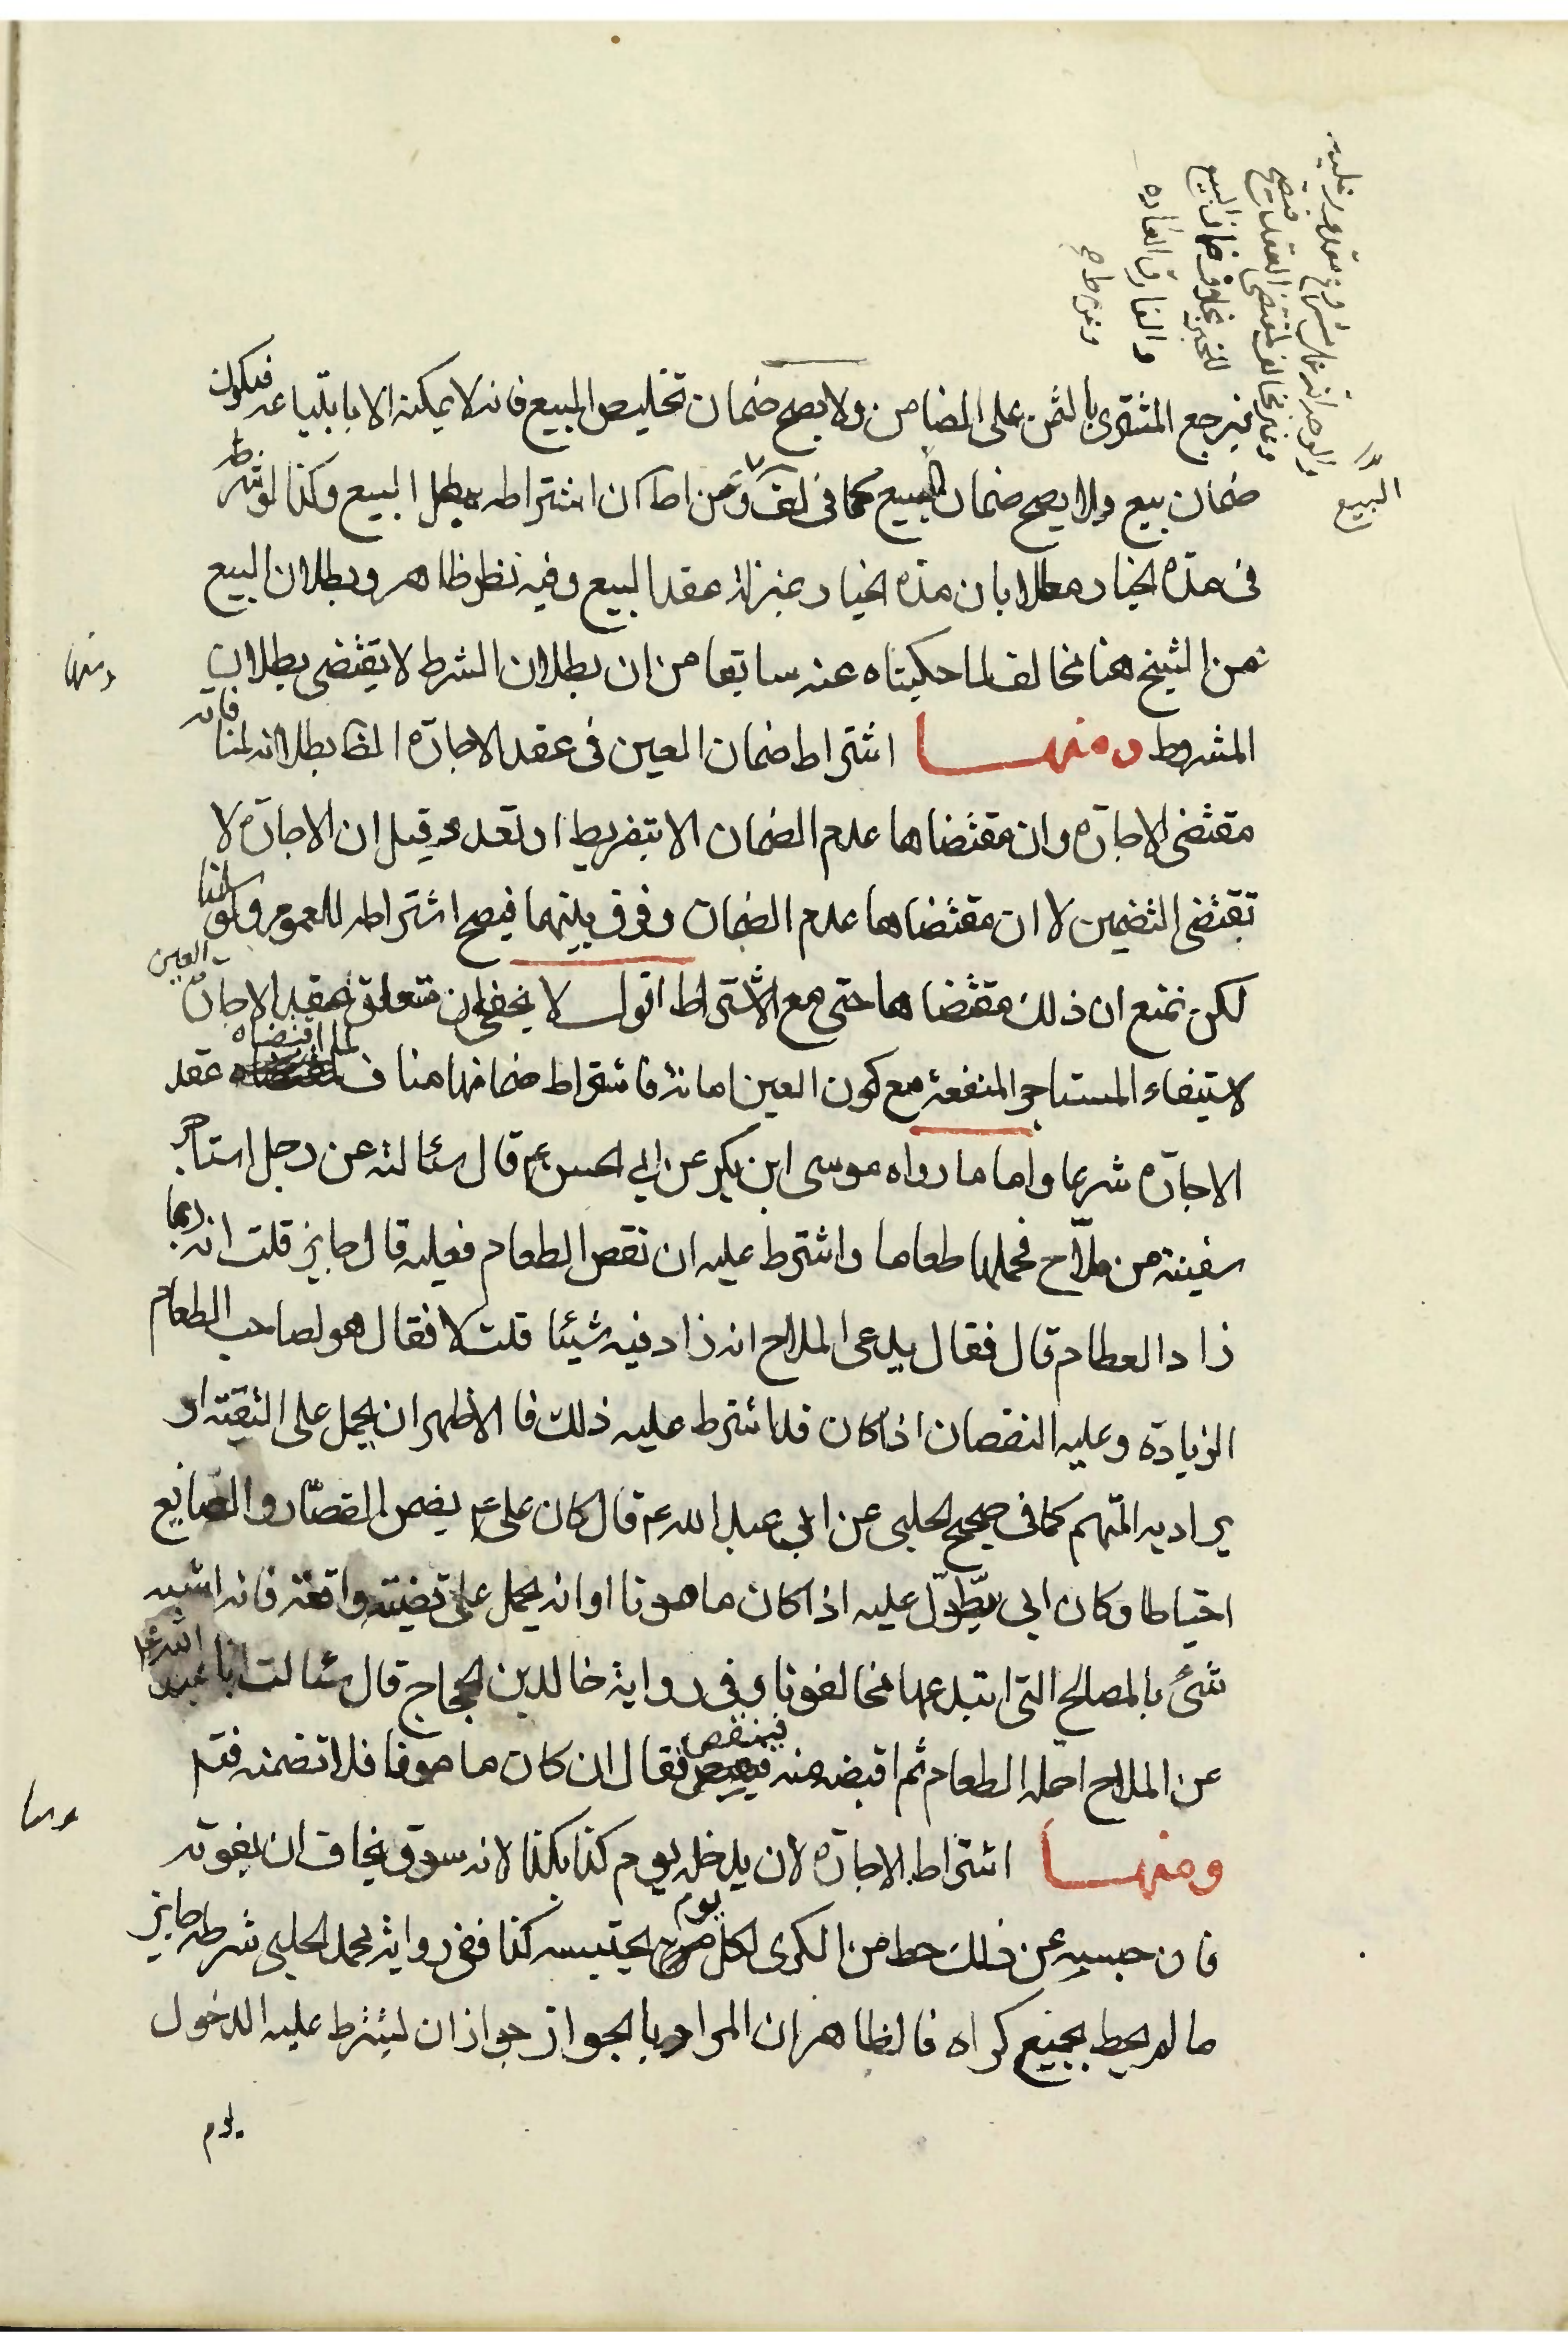 فيرجع المشترى بالثمن على الضامن ولا يصح ضمان تخليص المبيع فانه لا يمكنه الا بابتياعه فيكون
ضمان بيع ولا يصح ضمان المبيع كما فى من ان اشتراطه يبطل البيع وكذا لو شرط
فى مدّه الخيار معللا بان مدّه الخيار بمنزلة عقد البيع وفيه نظر ظاهر وبطلان البيع
من الشيخ هنا مخالف لما حكيناه عنه سابقا من ان بطلان الشرط لا يقتضى بطلان
المشروط ومنهـــا اشتراط ضمان العين فى عقد الاجاره الظ بطلانه لمنافاته
مقتضى الاجاره وان مقتضاها عدم الضمان الا بتفريط او تعد وقيل ان الاجاره لا
تقتضى التضمين لا ان مقتضاها عدم الضمان وفرق بينهما فيصح اشتراطه للعموم ولو سلمنا
لكن نمنع ان ذلك مقتضاها حتى مع الاشتراط اقول لا يخفى ان متعلق عقد الاجاره العين
لاستيفاء المستاجر المنفعة مع كون العين امانة فاشتراط ضمانها مناف لما اقتضاه عقد
الاجاره شرعا واما ما رواه موسى ابن بكر عن ابي الحسن ع قال سئالته عن رجل استاجر
سفينة من ملّاح فحملها طعاما واشترط عليه ان نقص الطعام فعليه قال جايز قلت انه ربما
زاد العطام قال فقال يدعى الملاح انه زاد فيه شيئا قلت لا فقال هو لصاحب الطعام
الزيادة وعليه النقصان اذا كان قد اشترط عليه ذلك فالاظهر ان يحمل على التقية او
يراد به المتّهم كما فى صحيح الحلبى عن ابي عبد الله ع قال كان على ع يضمن القصّار والصانع
احتياطا وكان ابي يتطول عليه اذا كان مامونا او انه يحمل على قضية واقعة فانه اشبه
شئ بالمصالح التى ابتدعها مخالفونا وفى رواية خالد بن الحجاج قال سئالت ابا عبد الله ع
عن الملاح احمله الطعام ثم اقبضه منه فينقص فقال ان كان مامونا فلا تضمنه فتم
ومنهـــا اشتراط الاجاره لان يدخله يوم كذا بكذا لانه سوق يخاف ان يفوته
فان حبسه عن ذلك حط من الكرى لكل يوم يحتبسه كذا ففى رواية محمد الحلبى شرطه جايز
ما لم يحط بجميع كراه فالظاهر ان المراد بالجواز جواز ان يشترط عليه الدخول
يوم
البيع
ومنها
ومنها